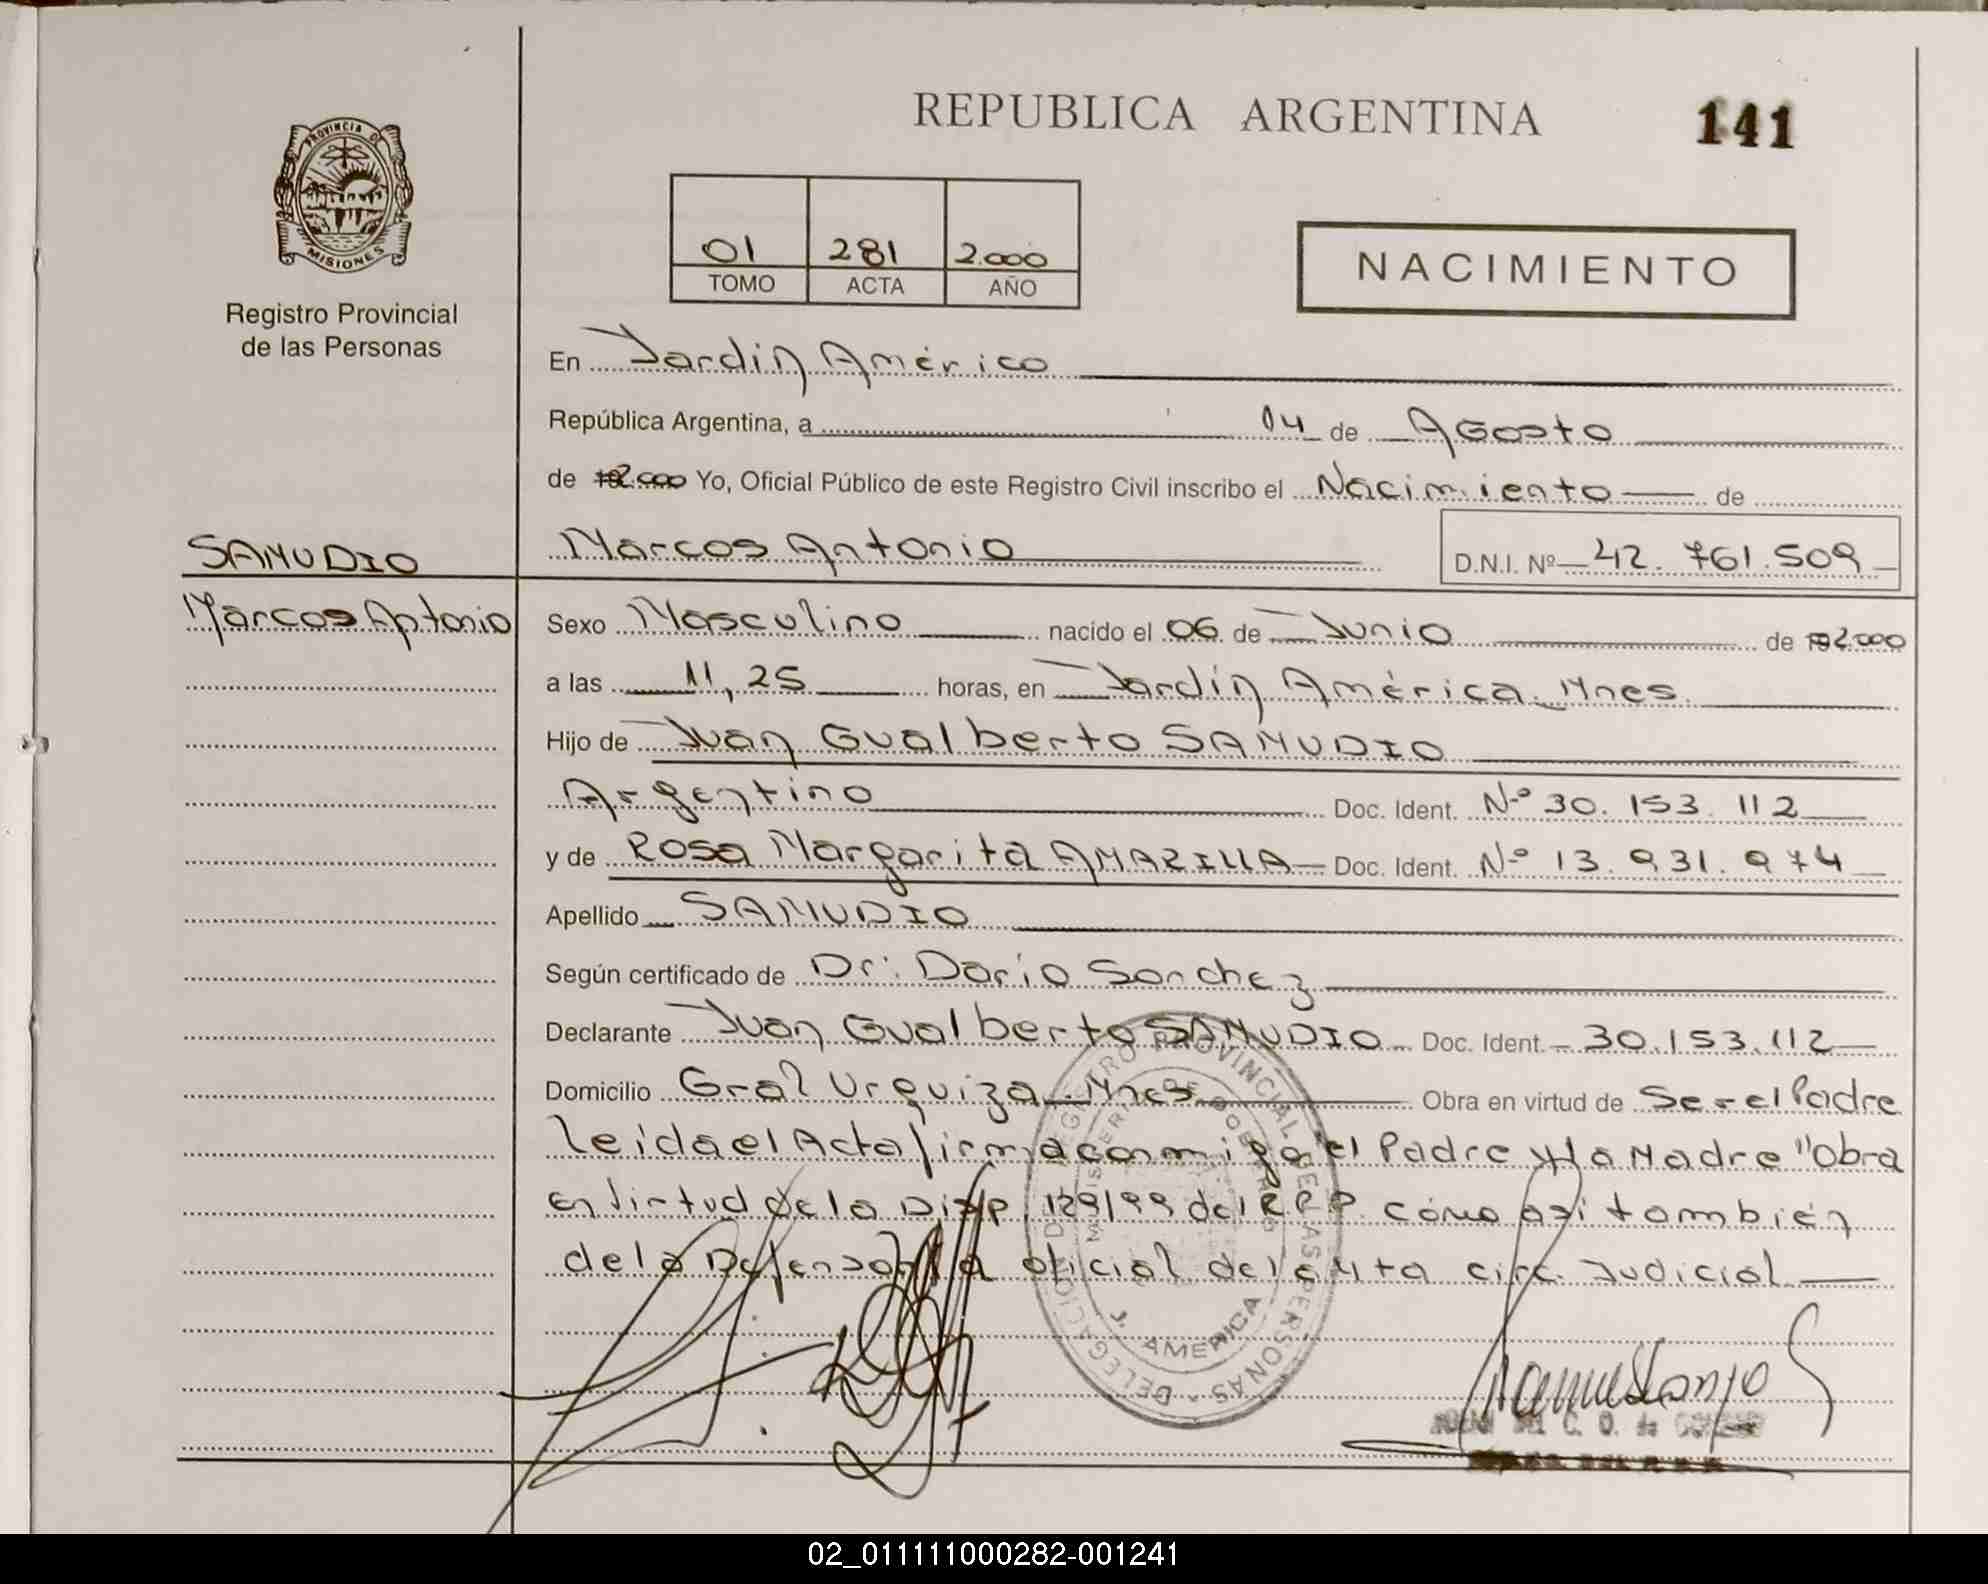 REPUBLICA ARGENTINA
141
PROVINCIA DE MISIONES
Registro Provincial
de las Personas
01 281 2.000
TOMO ACTA AÑO
NACIMIENTO
En Jardín América
República Argentina, a 04 de Agosto
de 2.000 Yo, Oficial Público de este Registro Civil inscribo el Nacimiento de
Marcos Antonio D.N.I. Nº 42.761.509
SAMUDIO
Marcos Antonio
Sexo Masculino nacido el 06 de Junio de 2.000
a las 11,25 horas, en Jardín América. Mnes.
Hijo de Juan Gualberto SAMUDIO
Argentino Doc. Ident. Nº 30.153.112
y de Rosa Margarita AMARILLA Doc. Ident. Nº 13.931.974
Apellido SAMUDIO
Según certificado de Dr: Darío Sanchez
Declarante Juan Gualberto SAMUDIO Doc. Ident. 30.153.112
Domicilio Gral Urquiza. Mnes Obra en virtud de Ser el Padre
Leida el Acta firma conmigo el Padre y la Madre "Obra
en Virtud de la Disp. 129/99 del R.P.P. cómo asi tambien
de la Defensoria oficial de la 4ta circ. Judicial
DELEGACION REGISTRO PROVINCIAL DE LAS PERSONAS
MINISTERIO DE GOBIERNO
J. AMERICA
02_011111000282-001241